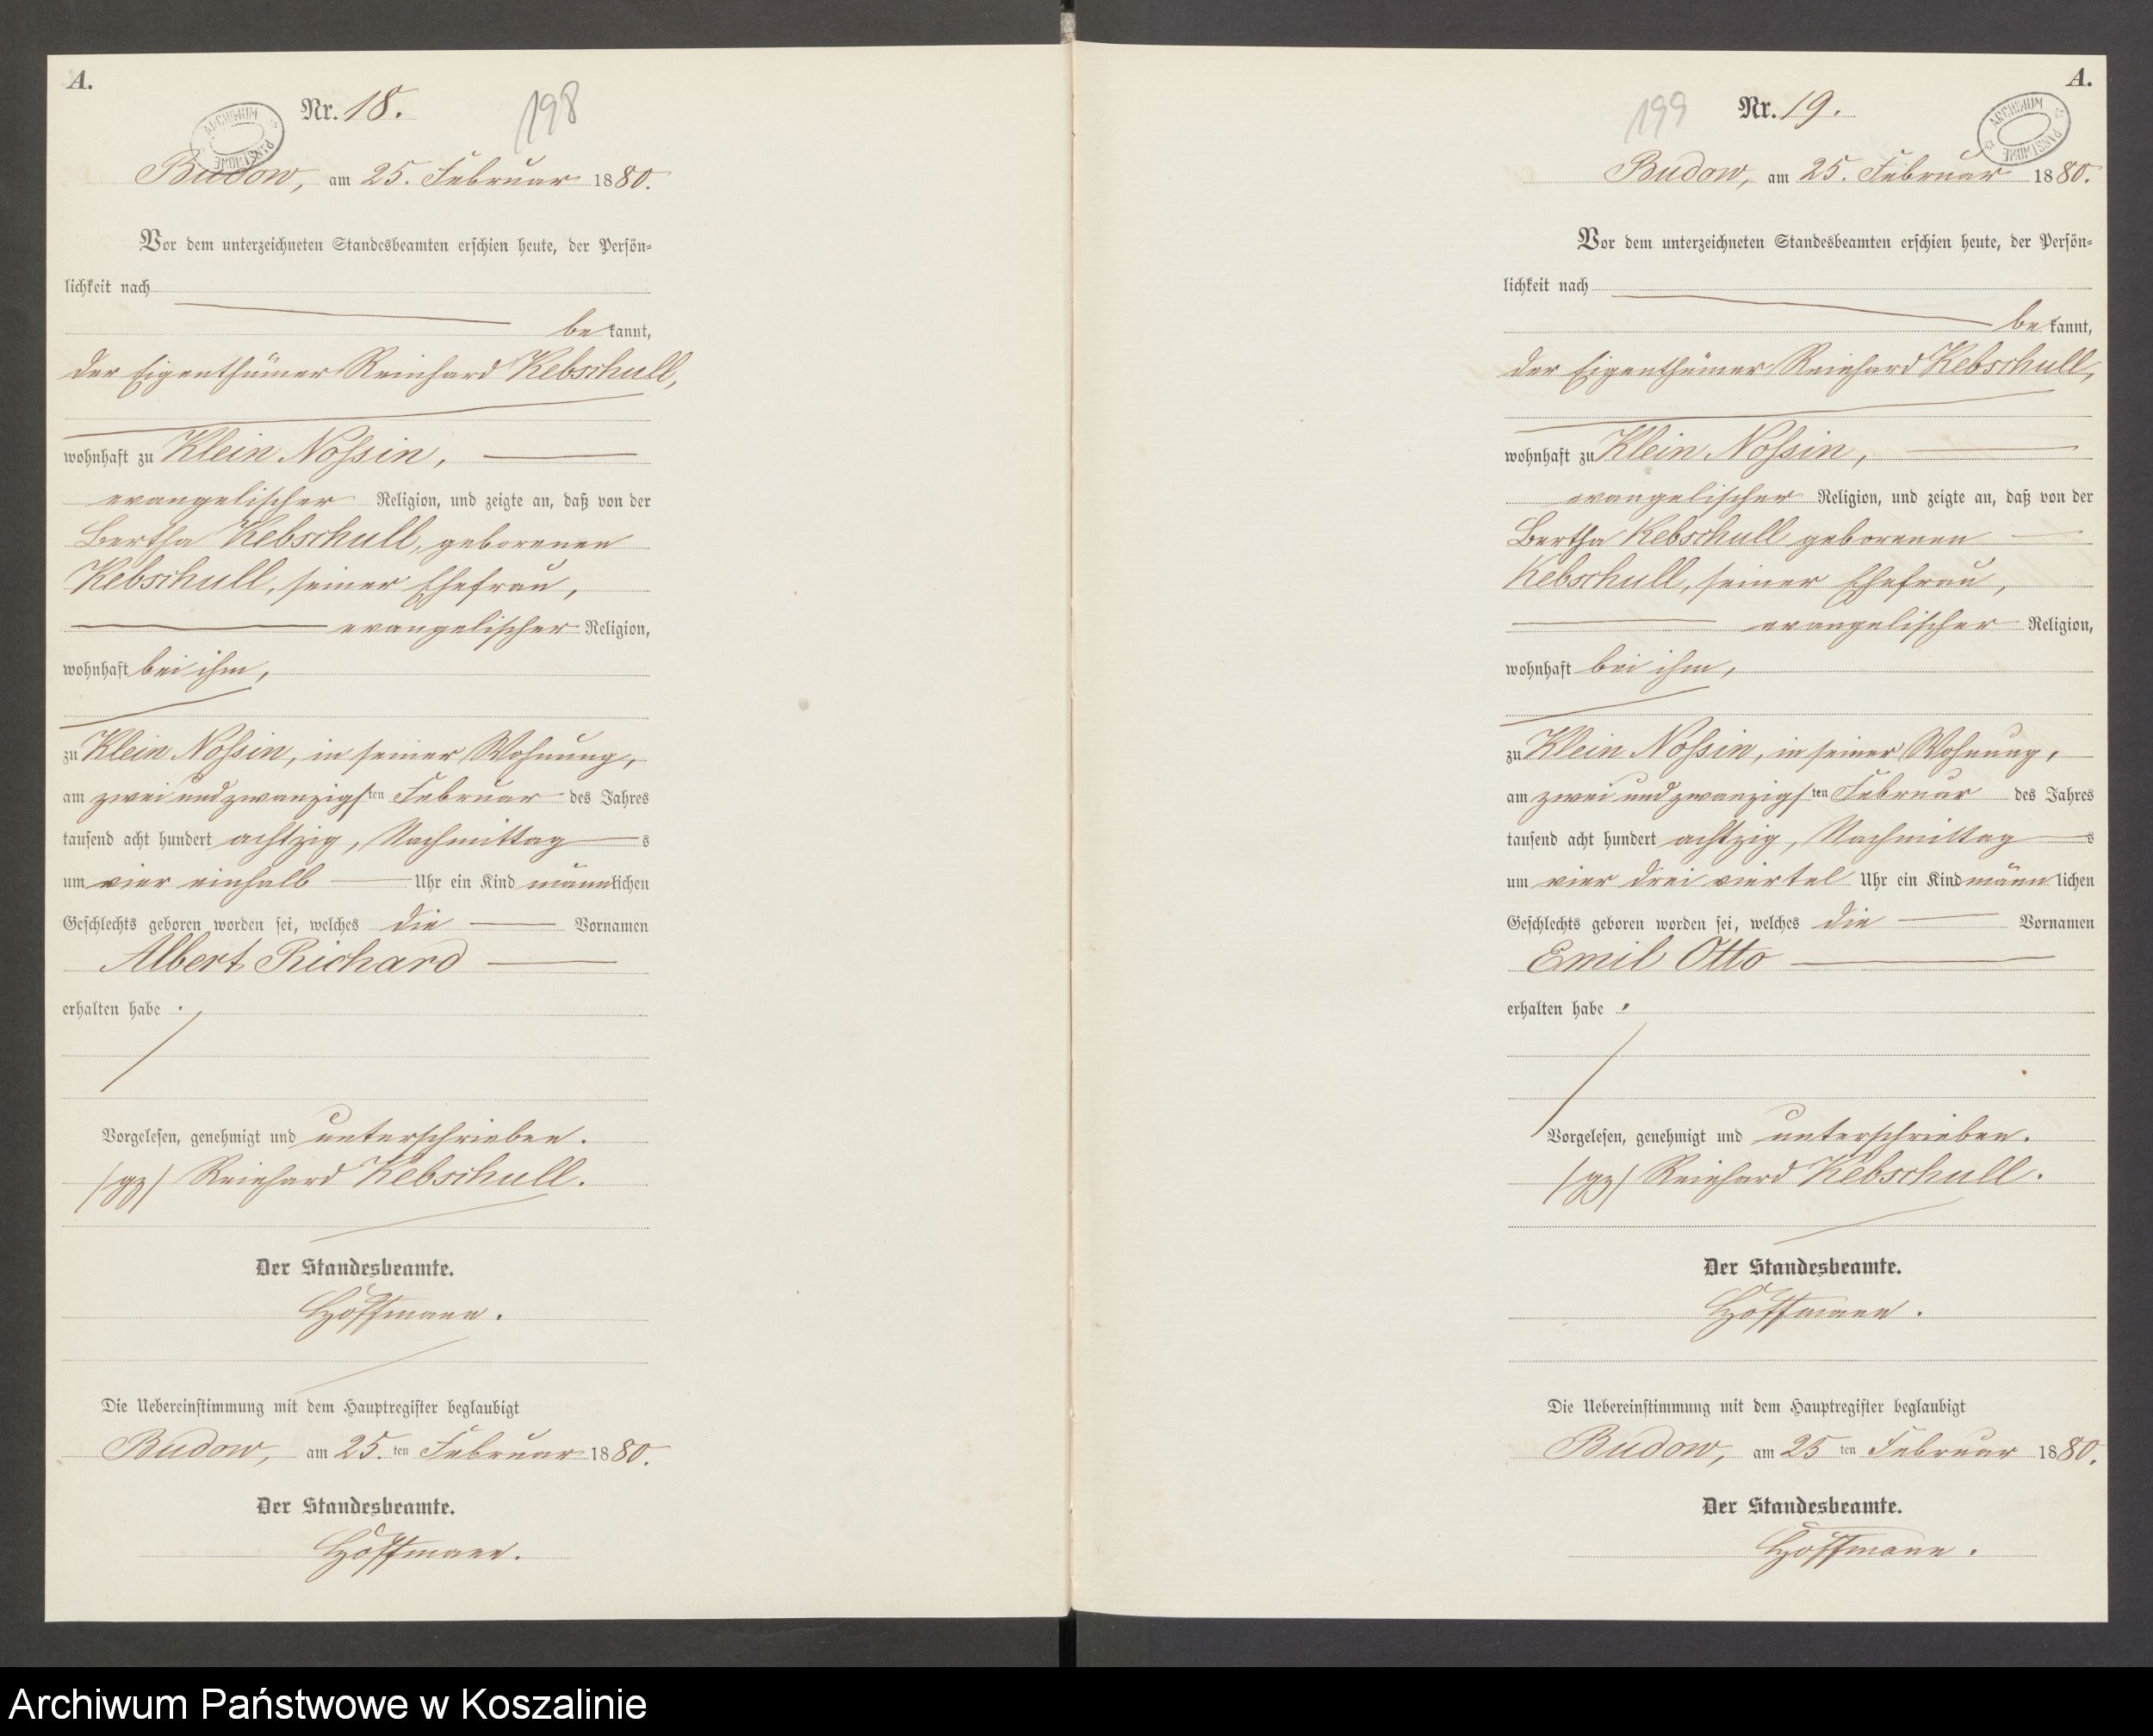 A.
Nr. 18.
198
ARCHIWUM PAŃSTWOWE
Budow, am 25. Februar 1880.
Vor dem unterzeichneten Standesbeamten erschien heute, der Persön=
lichkeit nach
bekannt,
der Eigenthümer Reinhard Kebschull,
wohnhaft zu Klein Noßin,
evangelischer Religion, und zeigte an, daß von der
Bertha Kebschull, geborenen
Kebschull, seiner Ehefrau,
evangelischer Religion,
wohnhaft bei ihm,
zu Klein Noßin, in seiner Wohnung,
am zwei und zwanzigsten Februar des Jahres
tausend acht hundert achtzig, Nachmittags
um vier einhalb Uhr ein Kind männlichen
Geschlechts geboren worden sei, welches die Vornamen
Albert Richard
erhalten habe.
Vorgelesen, genehmigt und unterschrieben.
/gz/ Reinhard Kebschull.
Der Standesbeamte.
Hoffmann.
Die Uebereinstimmung mit dem Hauptregister beglaubigt
Budow, am 25. ten Februar 1880.
Der Standesbeamte.
Hoffmann.
A.
199
Nr. 19.
ARCHIWUM PAŃSTWOWE
Budow, am 25. Februar 1880.
Vor dem unterzeichneten Standesbeamten erschien heute, der Persön=
lichkeit nach
bekannt,
der Eigenthümer Reinhard Kebschull,
wohnhaft zu Klein Noßin,
evangelischer Religion, und zeigte an, daß von der
Bertha Kebschull geborenen
Kebschull, seiner Ehefrau,
evangelischer Religion,
wohnhaft bei ihm,
zu Klein Noßin, in seiner Wohnung,
am zwei und zwanzigsten Februar des Jahres
tausend acht hundert achtzig, Nachmittags
um vier drei viertel Uhr ein Kind männlichen
Geschlechts geboren worden sei, welches die Vornamen
Emil Otto
erhalten habe.
Vorgelesen, genehmigt und unterschrieben.
/gz/ Reinhard Kebschull.
Der Standesbeamte.
Hoffmann.
Die Uebereinstimmung mit dem Hauptregister beglaubigt
Budow, am 25 ten Februar 1880.
Der Standesbeamte.
Hoffmann.
Archiwum Państwowe w Koszalinie